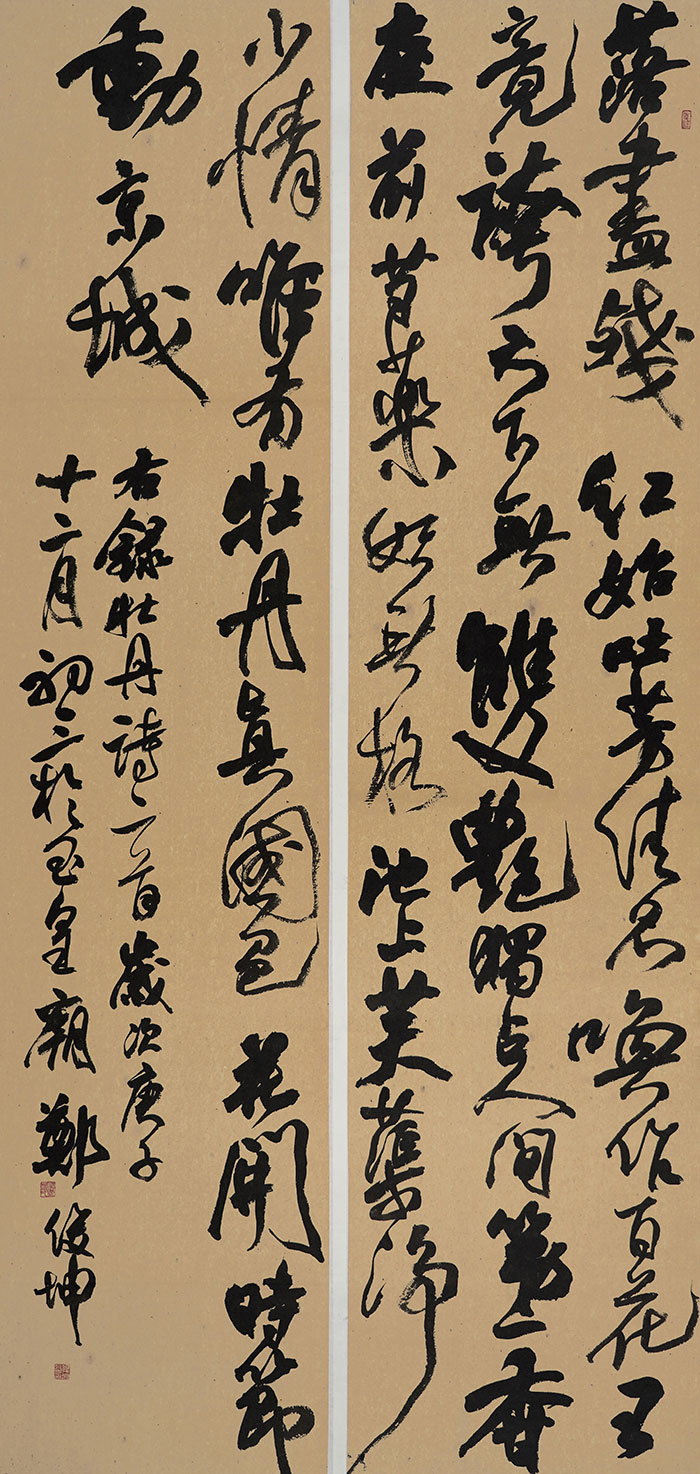 落盡殘紅始吐芳佳名喚作百花王
竟誇天下無雙艷獨占人間第一香
庭前芍藥妖無格池上芙蕖淨
少情唯有牡丹真國色花開時節
動京城
右錄牡丹詩二首歲次庚子
十二月初二於玉皇廟鄭俊坤